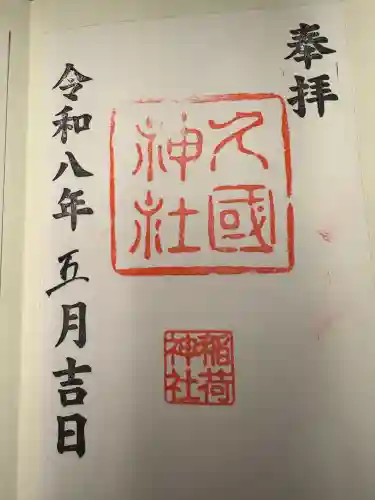 奉拝
久國
神社
稲荷
神社
令和八年五月吉日